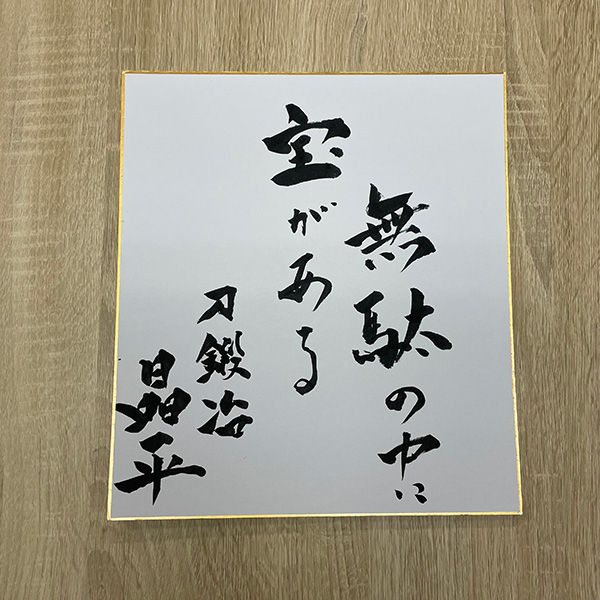 無駄の中に
宝がある
刀鍛冶
晶平